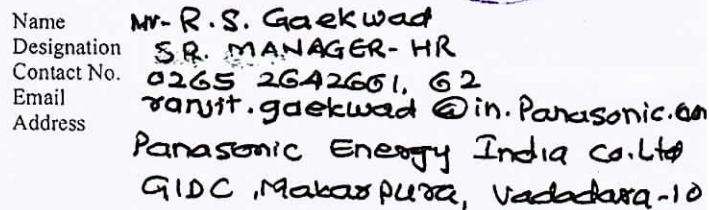 Name Mr- R.S. Gaekwad
Designation SR. MANAGER- HR
Contact No. 0265 2642661, 62
Email ranjit.gaekwad @in.Panasonic.com
Address
Panasonic Energy India Co.Ltd
GIDC, Makarpura, Vadadara-10